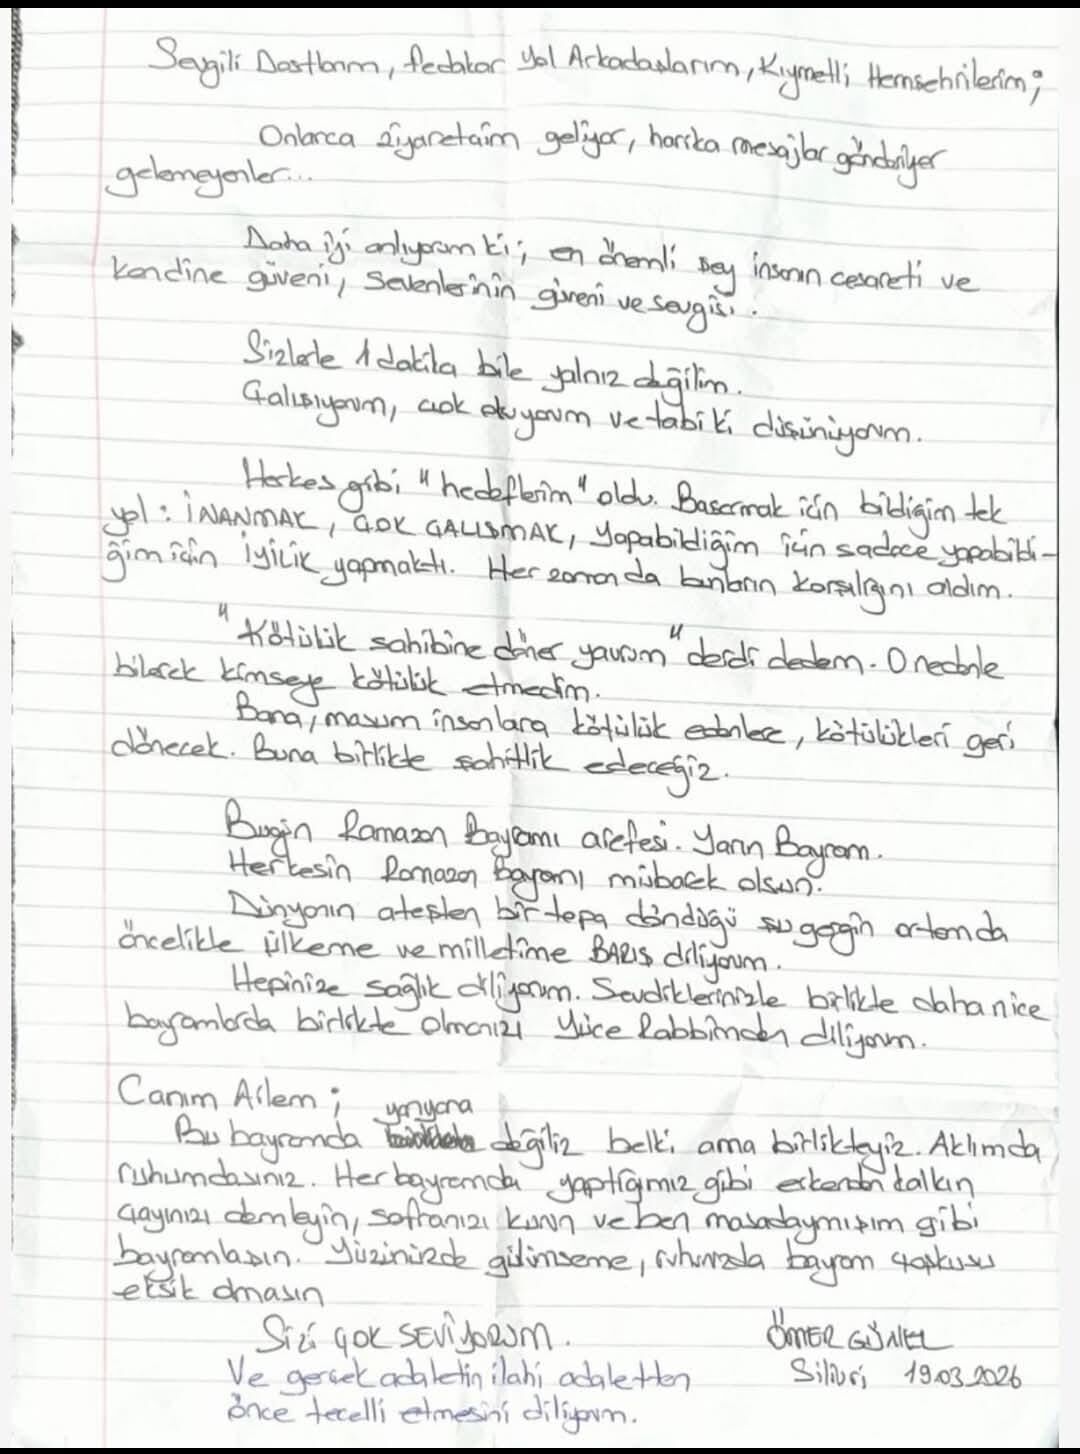 Sevgili Dostlarım, fedakar Yol Arkadaşlarım, Kıymetli Hemşehrilerim;
Onlarca ziyaretçim geliyor, harika mesajlar gönderiyor
gelemeyenler...
Daha iyi anlıyorum ki; en önemli şey insanın cesareti ve
kendine güveni, sevenlerinin güveni ve sevgisi.
Sizlerle 1 dakika bile yalnız değilim.
Çalışıyorum, çok okuyorum ve tabi ki düşünüyorum.
Herkes gibi "hedeflerim" oldu. Başarmak için bildiğim tek
yol: İNANMAK, ÇOK ÇALIŞMAK, Yapabildiğim için sadece yapabildi-
ğim için İYİLİK yapmaktı. Her zaman da bunların karşılığını aldım.
"Kötülük sahibine döner yavrum" derdi dedem. O nedenle
bilerek kimseye kötülük etmedim.
Bana, masum insanlara kötülük edenlere, kötülükleri geri
dönecek. Buna birlikte şahitlik edeceğiz.
Bugün Ramazan Bayramı arefesi. Yarın Bayram.
Herkesin Ramazan Bayramı mübarek olsun.
Dünyanın ateşten bir topa döndüğü şu gergin ortamda
öncelikle ülkeme ve milletime BARIŞ diliyorum.
Hepinize sağlık diliyorum. Sevdiklerinizle birlikte daha nice
bayramlarda birlikte olmanızı Yüce Rabbimden diliyorum.
Canım Ailem;
Bu bayramda yanyana değiliz belki ama birlikteyiz. Aklımda
ruhumdasınız. Her bayramda yaptığımız gibi erkenden kalkın
çayınızı demleyin, sofranızı kurun ve ben masadaymışım gibi
bayramlaşın. Yüzünüzde gülümseme, ruhunuzda bayram coşkusu
eksik olmasın
SİZİ ÇOK SEVİYORUM.
Ve gerçek adaletin ilahi adaletten
önce tecelli etmesini diliyorum.
ÖMER GÜNEL
Silivri 19.03.2026